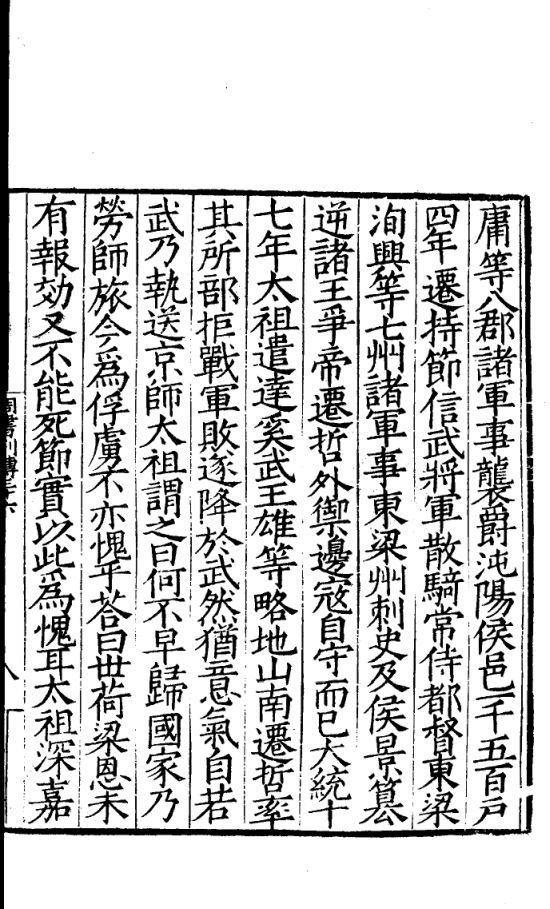 庸等八郡諸軍事襲爵沌陽侯邑一千五百戸
四年遷持節信武將軍散騎常侍都督東梁
洵興等七州諸軍事東梁州刺史及侯景篡
逆諸王爭帝遷哲外禦邊寇自守而已大統十
七年太祖遣達奚武王雄等略地山南遷哲率
其所部拒戰軍敗遂降於武然猶意氣自若
武乃執送京師太祖謂之曰何不早歸國家乃
勞師旅今爲俘虜不亦愧乎荅曰世荷梁恩未
有報効又不能死節實以此為愧耳太祖深嘉
周書列傳三十六
八